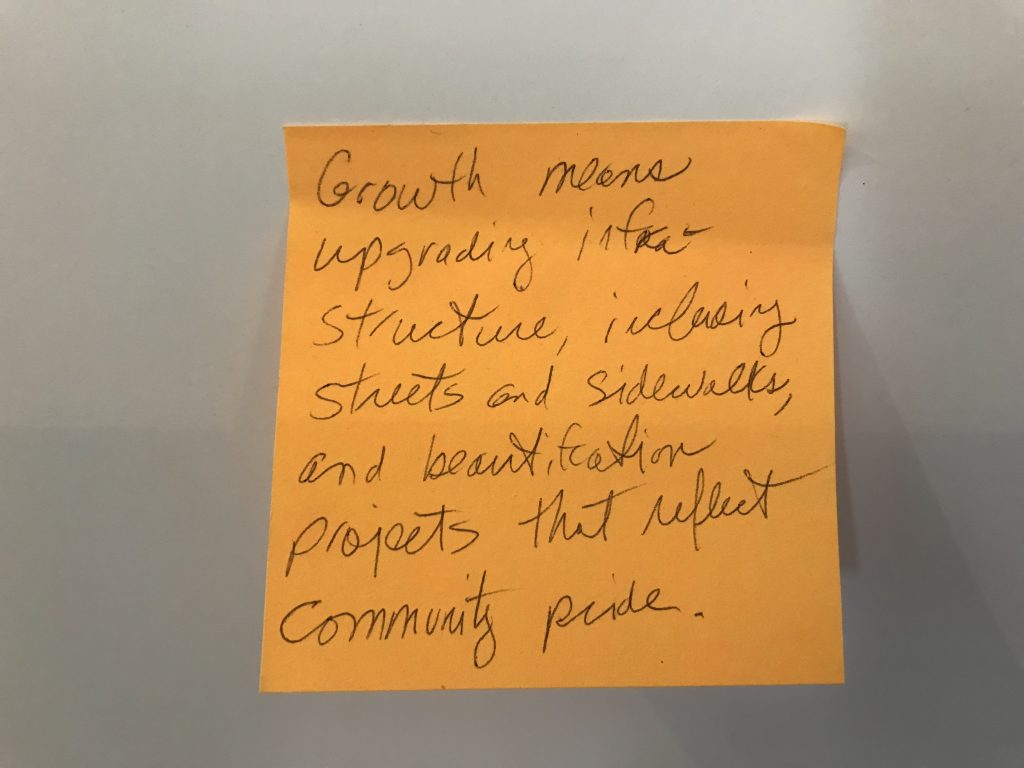 Growth means
upgrading infra-
structure, including
streets and sidewalks,
and beautification
projects that reflect
community pride.